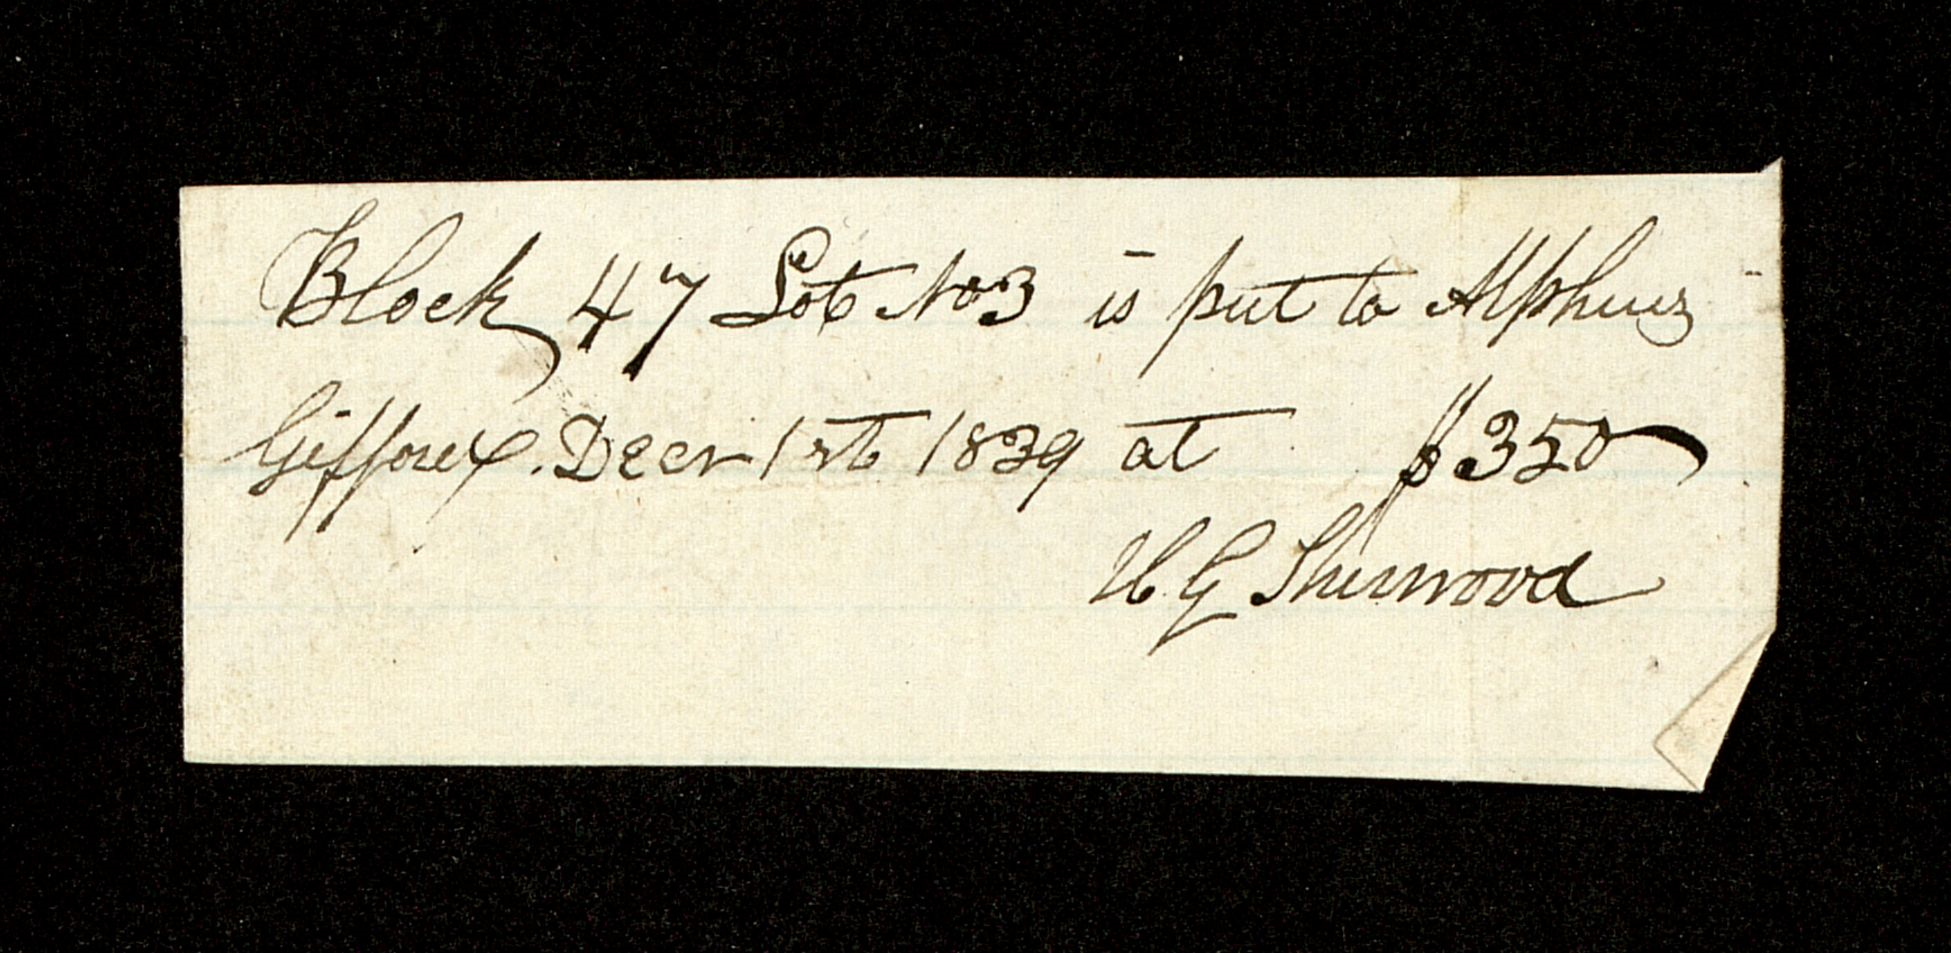 Block 47 Lot No 3 is put to Alpheus
Gifford. Decr 1st 1839 at $350
H G Sherwood